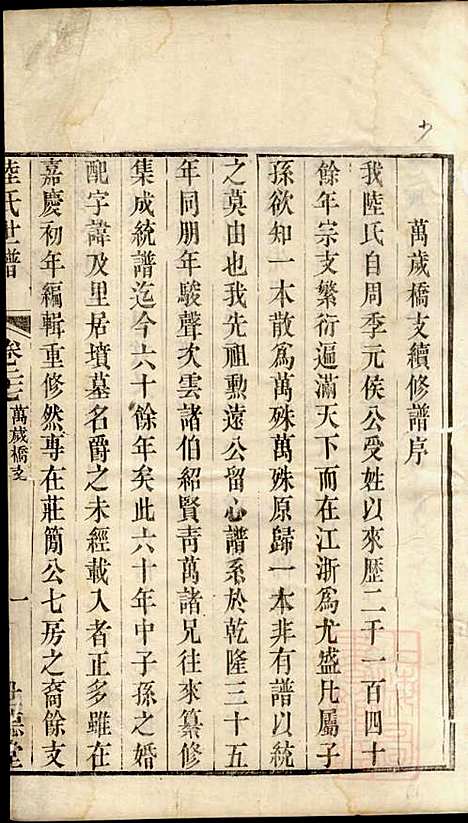 萬歲橋支續修譜序
我陸氏自周季元侯公受姓以來歷二千一百四十
餘年宗支繁衍遍滿天下而在江浙為尤盛凡屬子
孫欲知一本散為萬殊萬殊原歸一本非有譜以統
之莫由也我先祖勲遠公留心譜系於乾隆三十五
年同朋年駿聲次雲諸伯紹賢靑萬諸兄往來纂修
集成統譜迄今六十餘年矣此六十年中子孫之婚
配字諱及里居墳墓名爵之未經載入者正多雖在
嘉慶初年編輯重修然專在莊簡公七房之裔餘支
陸氏世譜
卷二
萬歲橋支
一
世德堂